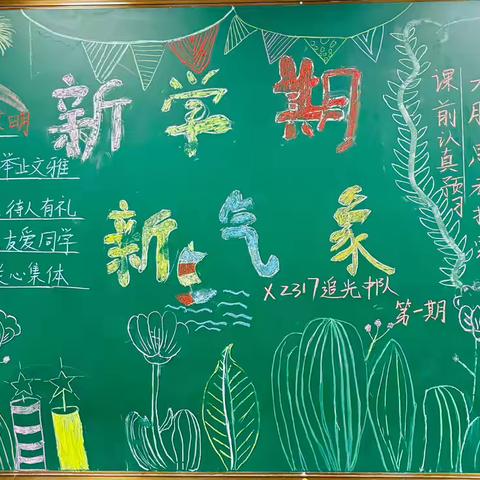 新学期
新气象
明
举止文雅
待人有礼
友爱同学
关心集体
X2317追光中队
第一期
课前认真预习